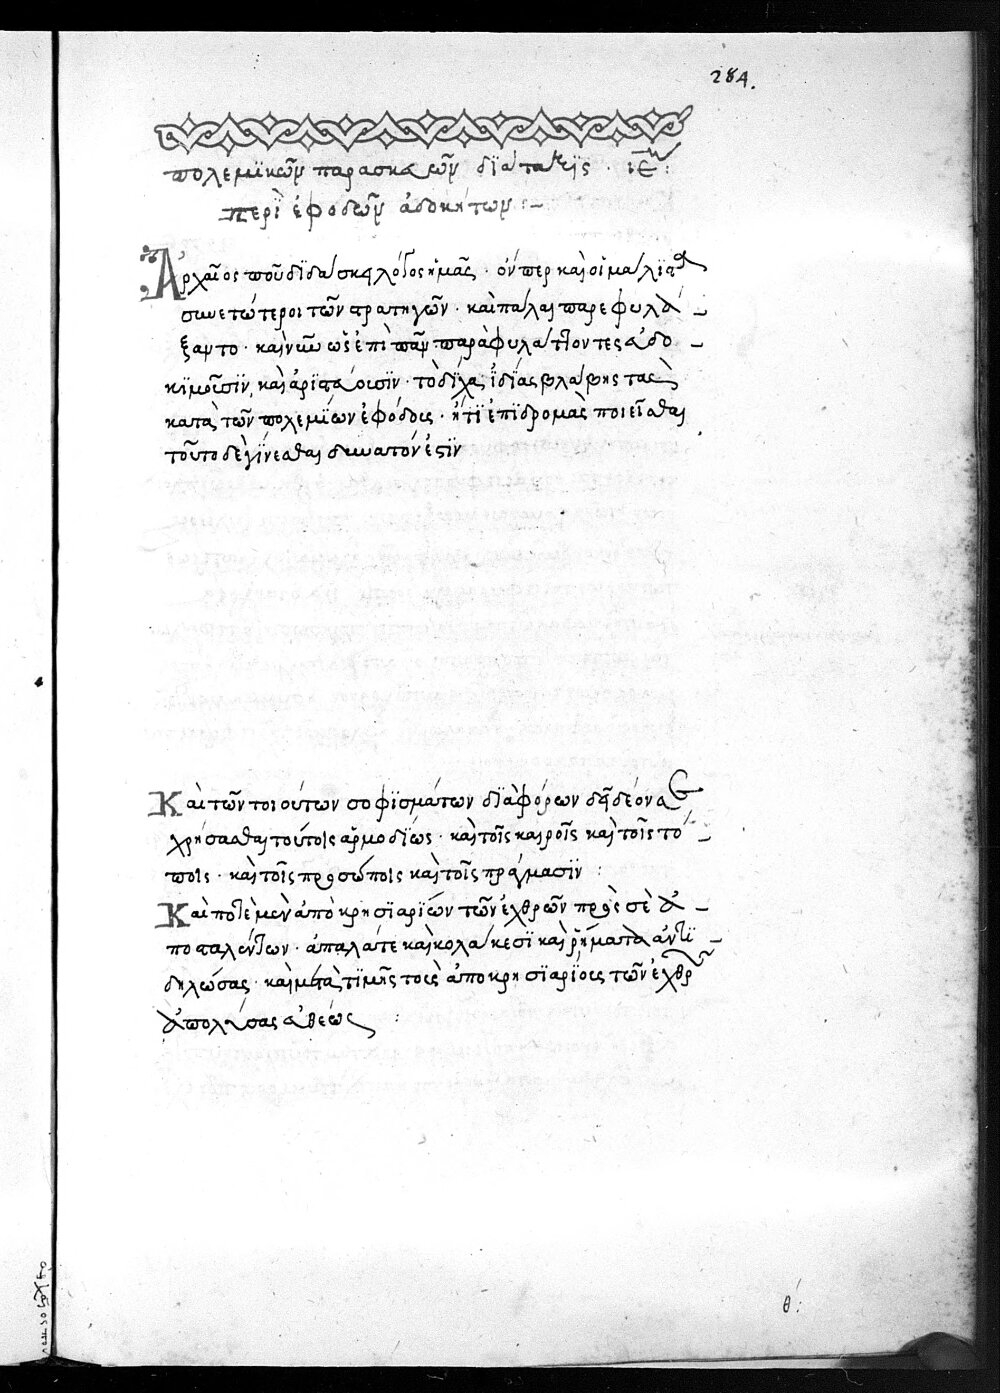 284.
πολεμϊκῶν παρασκευῶν δϊάταξϊς · ιε:
περὶ ἐφοδῶν ἀδοκήτων :–
Ἀρχαῖος που διδάσκει λόγος ἡμᾶς · όν περ καὶ οἱ μάλιστα
συνετώτεροι τῶν στρατηγῶν · καὶ πάλαι παρεφυλά
ξαντο · καὶ νῦν ὡς ἐπὶ πᾶν παραφυλάττοντες εὐδο
κϊμοῦσϊν, καὶ ἀριστεύουσϊν · τὸ δίχα ἰδίας βλάβης τὰς
κατὰ τῶν πολεμΐων ἐφόδους · ἤτϊ ἐπϊδρομὰς ποιεῖσθαι
τοῦτο δὲ γίνεσθαι δυνατόν ἐστϊν
Καὶ τῶν τοιούτων σοφϊσμάτων διαφόρων δὲ δέον ας
χρήσασθαι τούτοις ἁρμοδίως · καὶ τοῖς καιροῖς καὶ τοῖς τό
ποις · καὶ τοῖς προσώποις καὶ τοῖς πράγμασϊν :
Καὶ ποτὲ μὲν ἀποκρησϊαρίων τῶν ἐχθρῶν πρὸς σὲ ἀ
ποσταλέντων · καὶ κολακεσϊ καὶ ῥήματα ἀντϊ
δηλώσας · καὶ μετὰ τϊμῆς τοὺς ἀποκρησϊαρίους τῶν ἐχθρῶν
ἀπολύσας εὐθέως
θ: